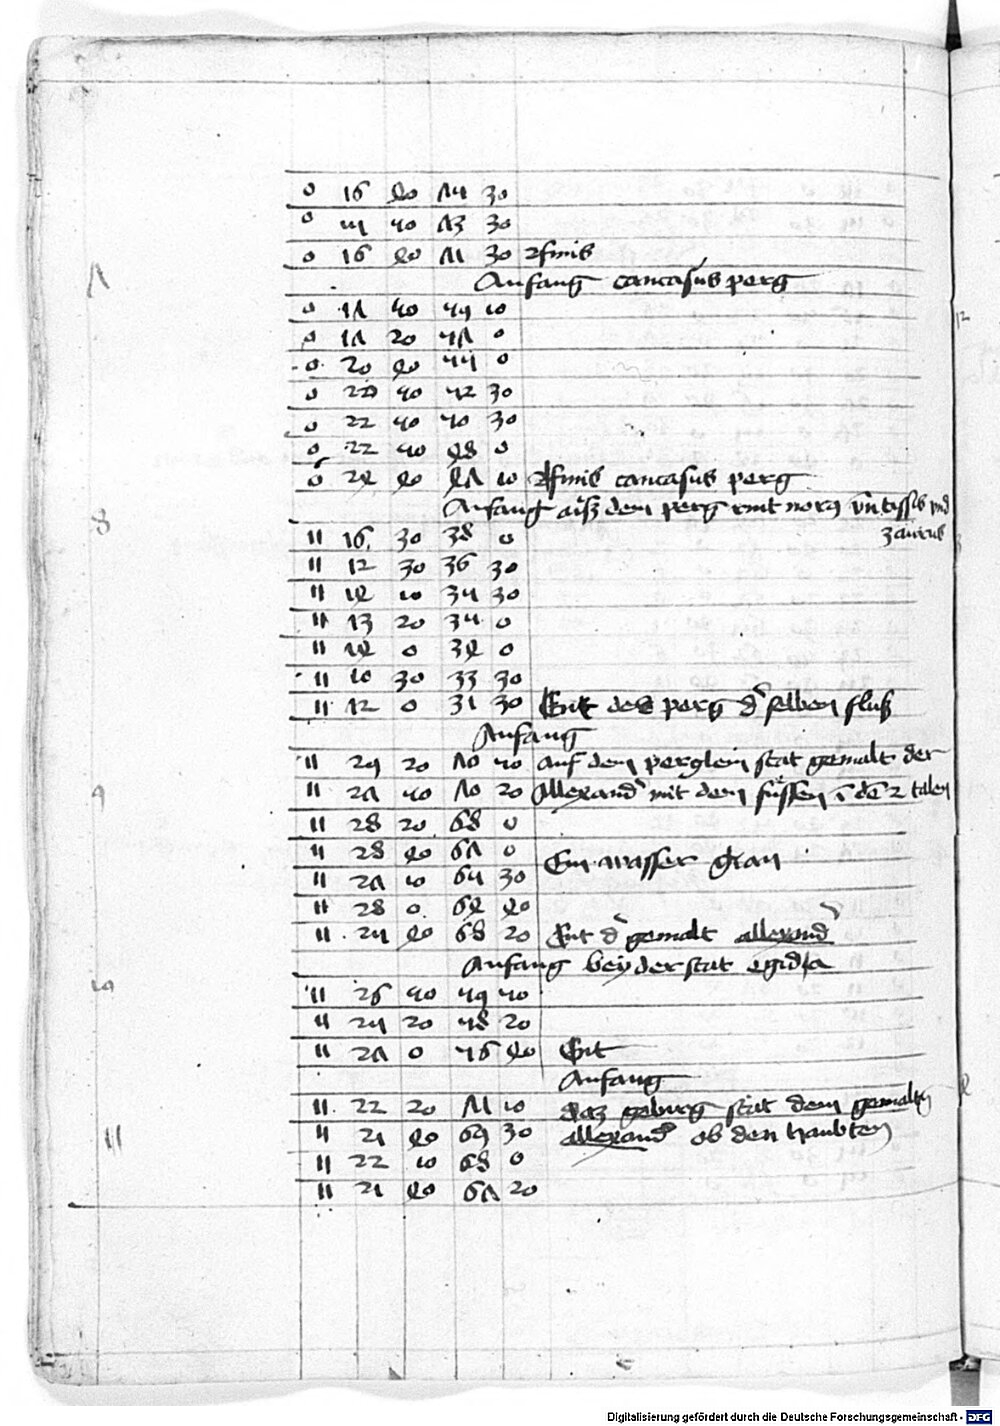 0 16 40 75 30
0 15 50 73 30
0 16 40 71 30 finis
7
Anfang caucasus perg
0 17 50 59 10
0 17 20 57 0
0 20 40 55 0
0 22 50 52 30
0 22 50 50 30
0 22 50 48 0
0 24 40 47 10 finis caucasus perg
8
Anfang auß dem perg rint vnd
zaurus
11 16 30 38 0
11 12 30 36 30
11 14 10 35 30
11 13 20 35 0
11 14 0 34 0
11 10 30 33 30
11 12 0 31 30 Ent des perg d' selben fluß
Anfang
11 25 20 70 50 auf dem perglein stat gemalt der
9
11 27 50 70 20 allexand' mit dem füssen ī dē 2 talen
11 28 20 68 0
11 28 40 67 0 Ein wasser gran
11 27 10 65 30
11 28 0 64 40
11 25 40 68 20 Ent d' gemalt allexand'
Anfang bey der stat egidia
10
11 26 50 59 50
11 25 20 58 20
11 27 0 56 40 Ent
Anfang
11 22 20 71 10 daz geburg stat dem gemalten
11
11 21 40 69 30 allexand' ob den haubten
11 22 10 68 0
11 21 40 67 20
Digitalisierung gefördert durch die Deutsche Forschungsgemeinschaft - DFG